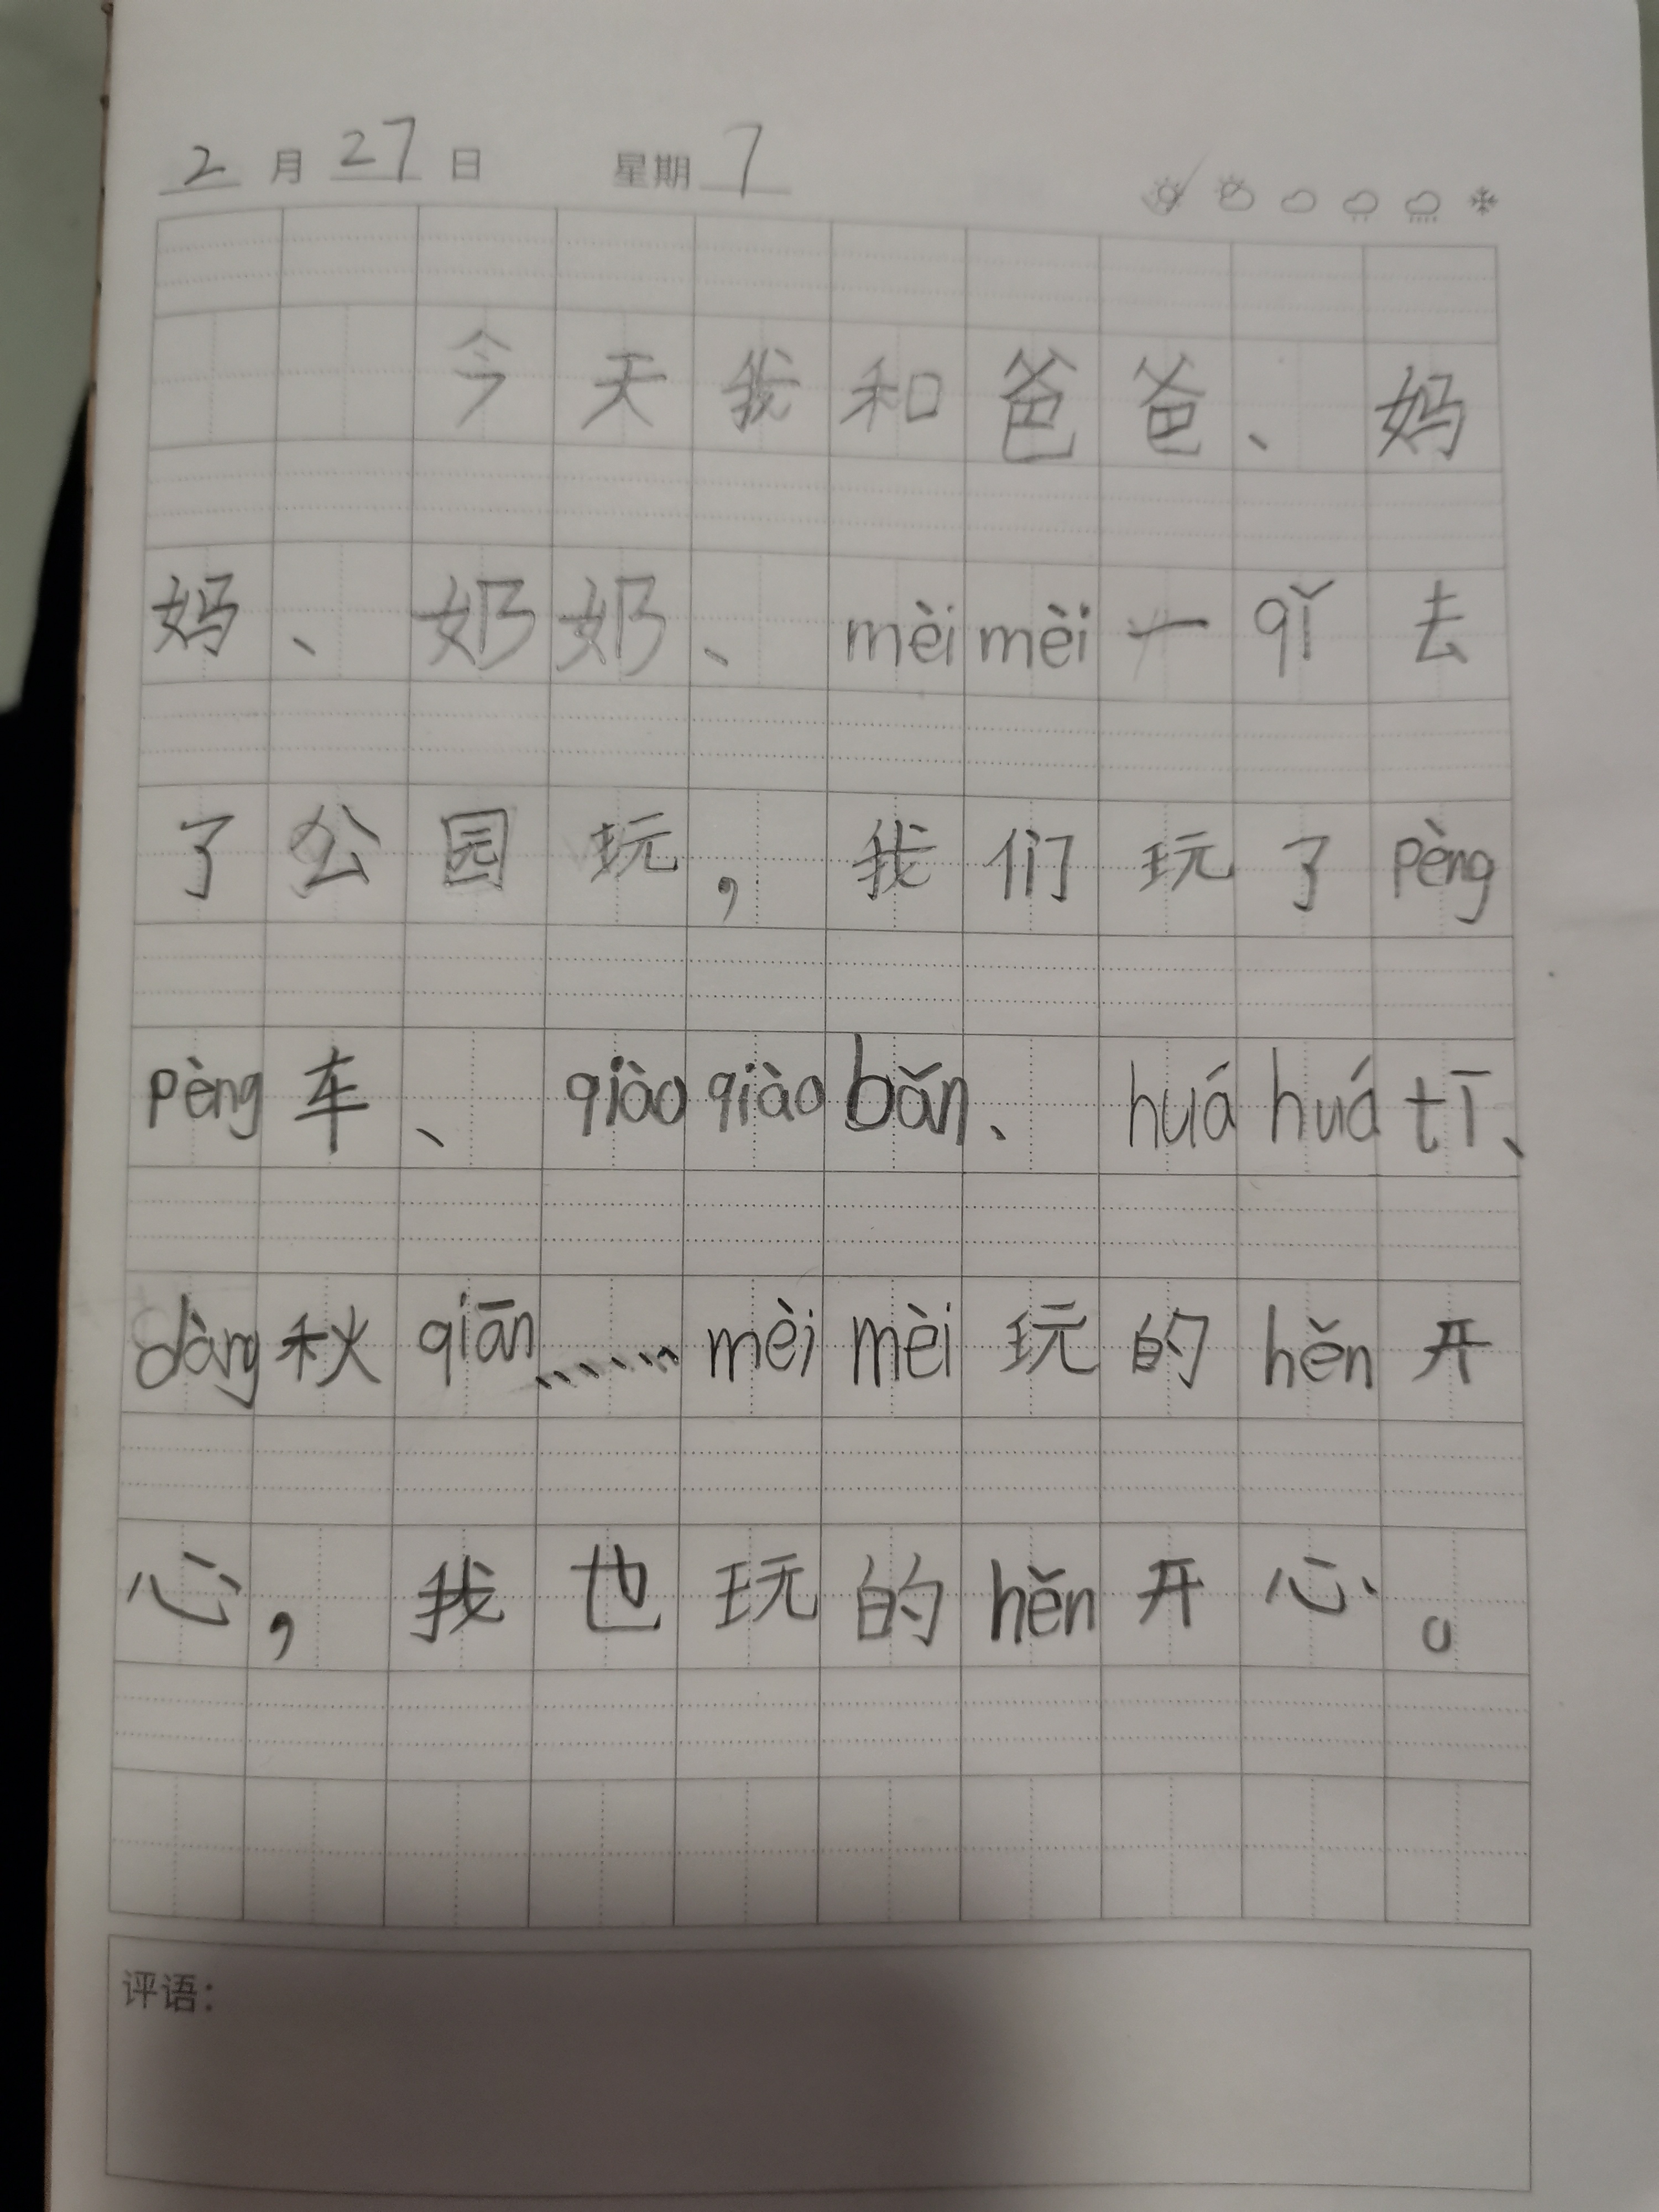 2月27日 星期7
今天我和爸爸、妈
妈、奶奶、mèimèi一qǐ去
了公园玩，我们玩了pèng
pèng车、qiàoqiàobǎn、huáhuátī、
dàng秋qiān……mèimèi玩的hěn开
心，我也玩的hěn开心。
评语：